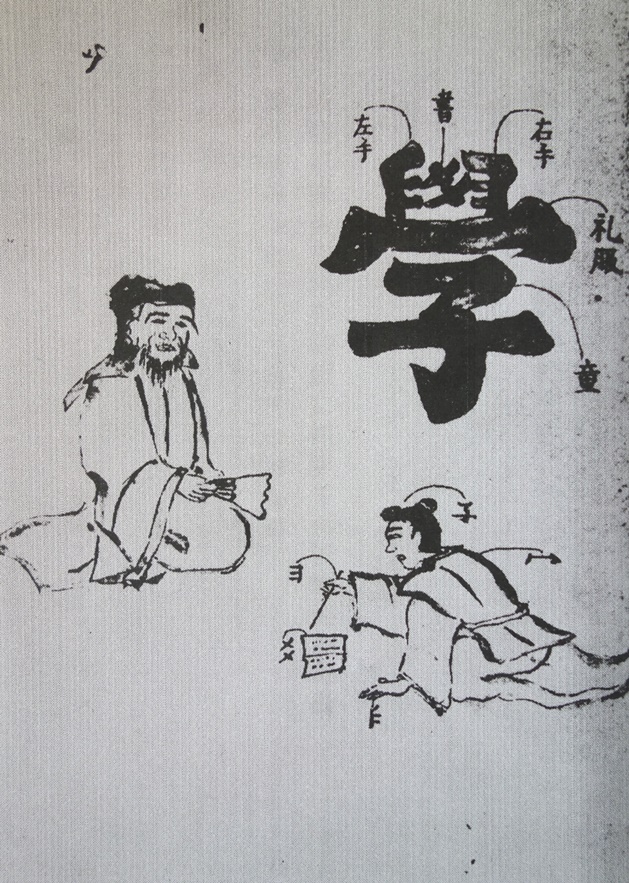 書
左手
右手
學
礼服
童
子
冖
彐
爻